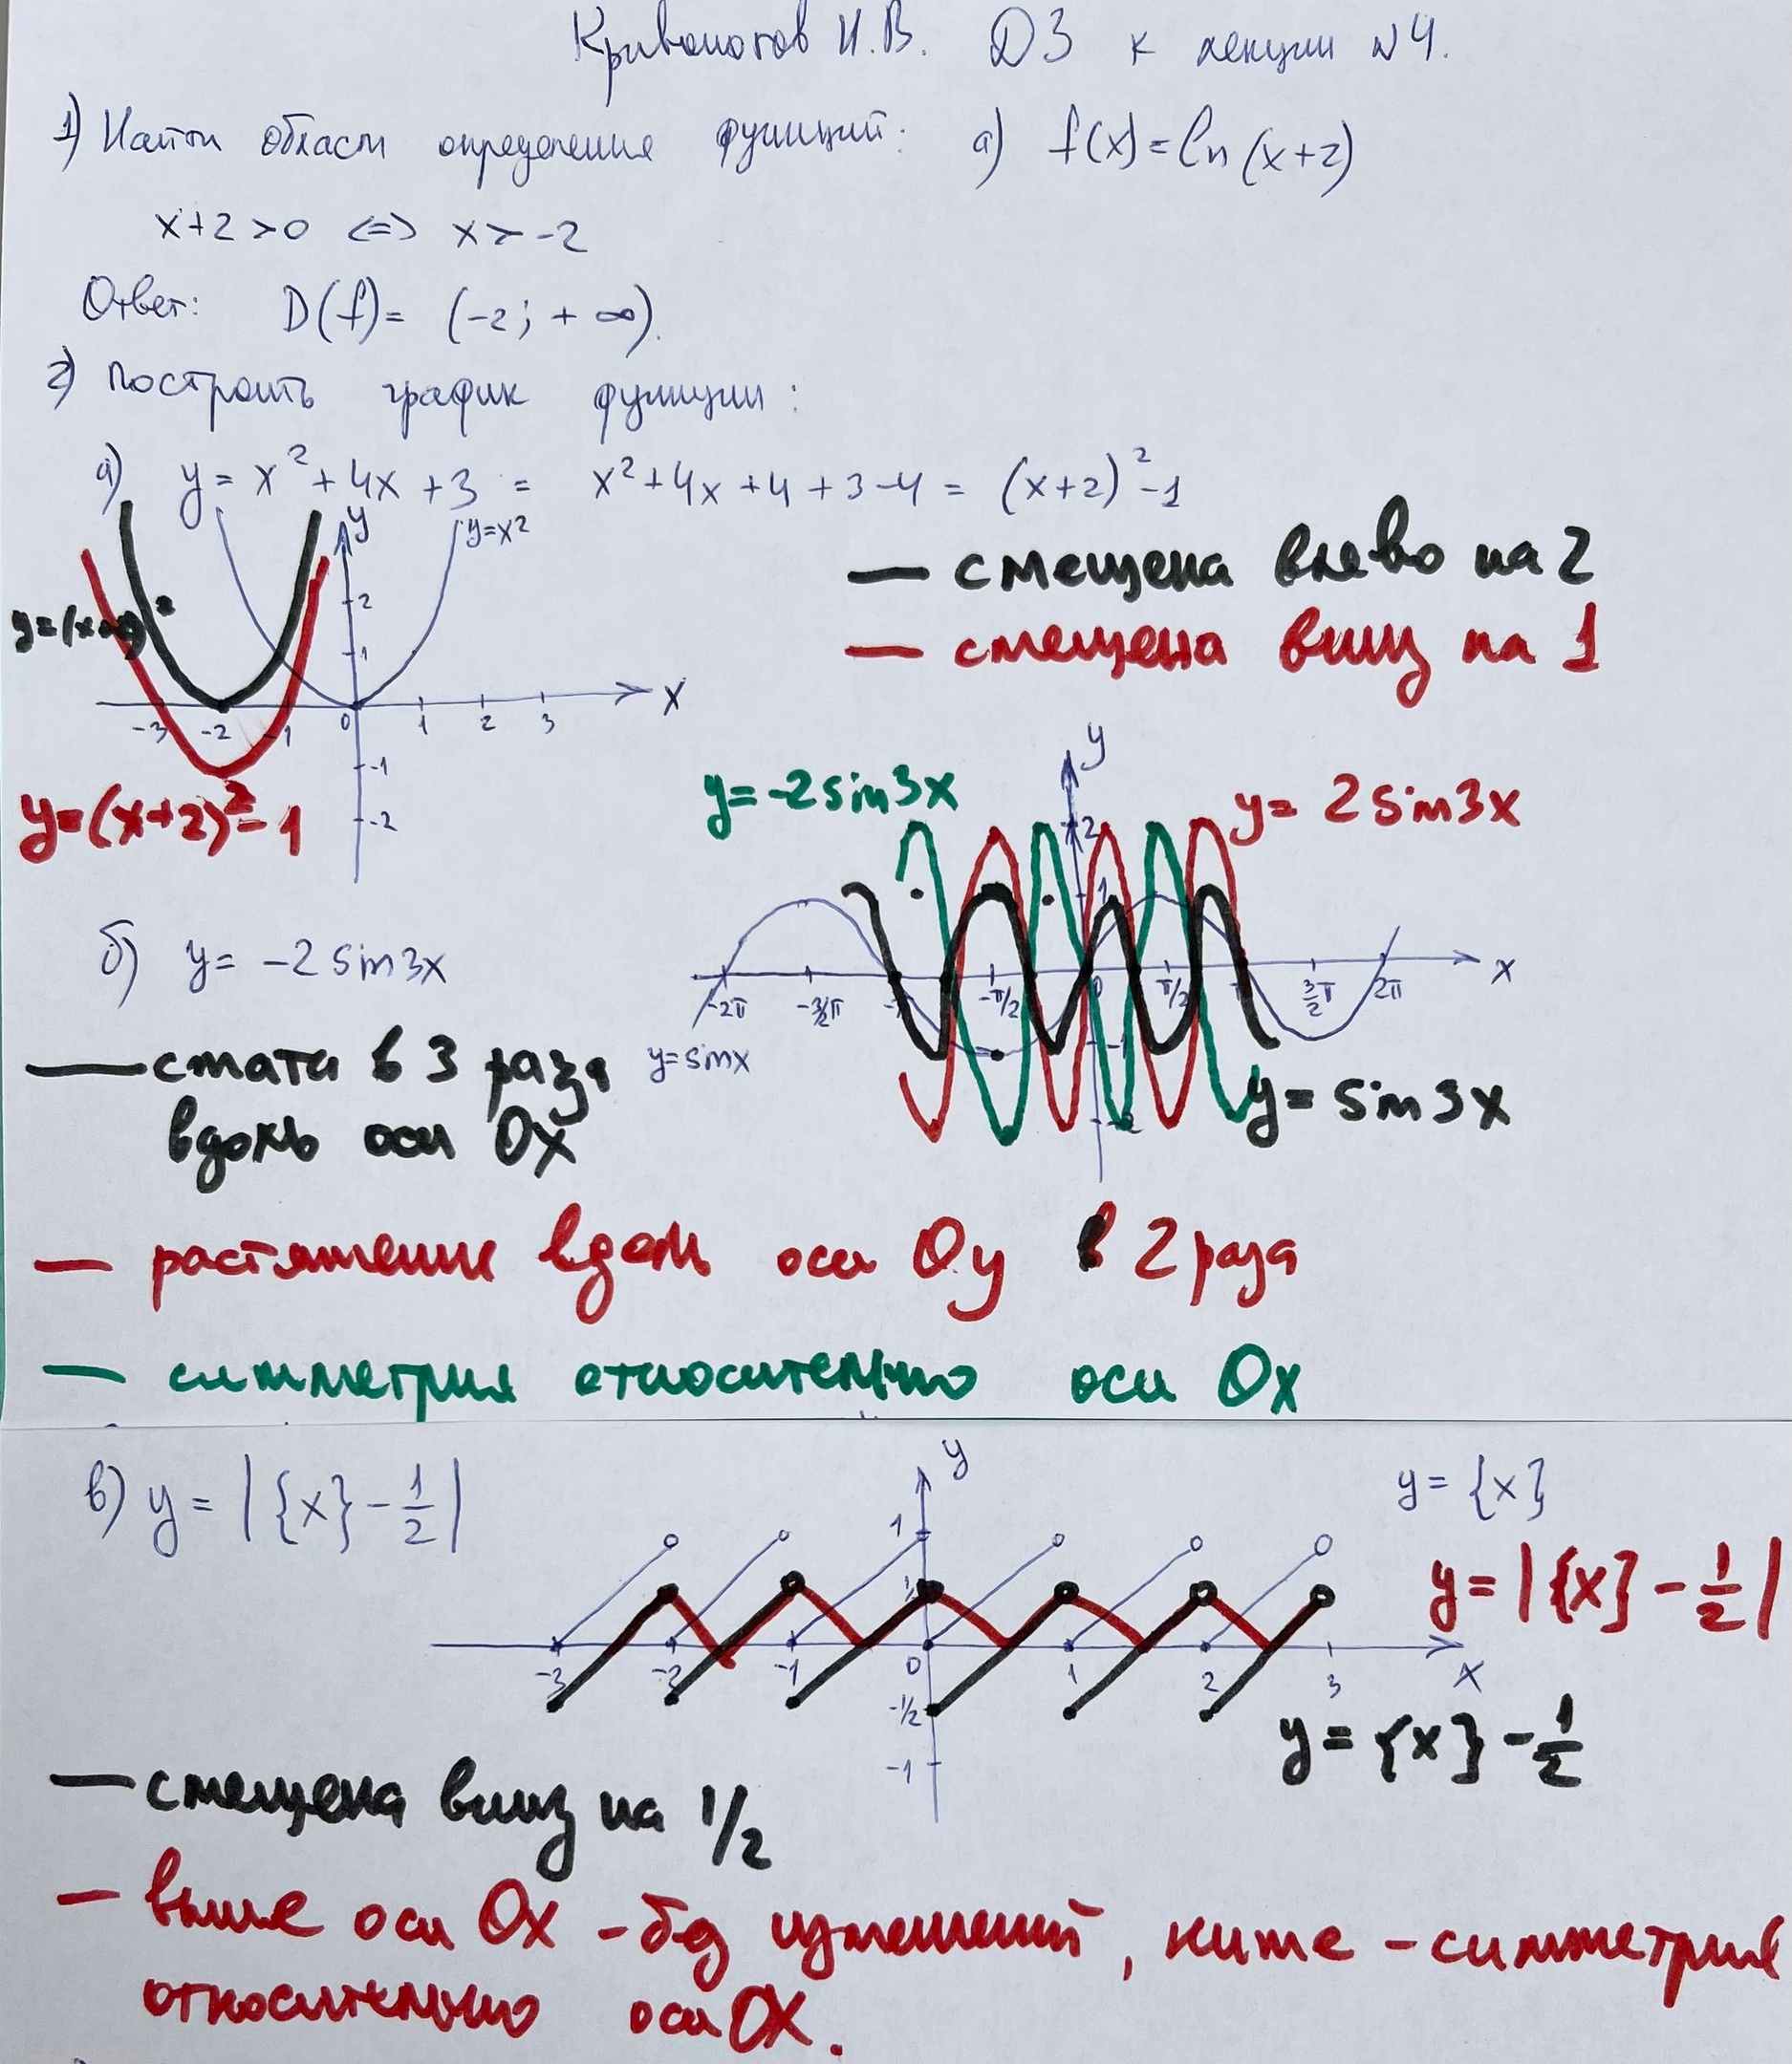 Кривоногов И.В. ДЗ к лекции №4.
1) Найти области определения функций: а) f(x)=ln(x+2)
x+2>0 <=> x>-2
Ответ: D(f)= (-2; +∞).
2) Построить график функции:
а) y= x²+4x+3 = x²+4x+4+3-4= (x+2)²-1
y
y=x²
— смещена влево на 2
— смещена вниз на 1
2
1
x
-3 -2 -1 0 1 2 3
-1
-2
y=(x+2)²-1
y
y=-2sin3x
y= 2sin3x
2
1
б) y= -2sin3x
x
-2π -3/2π -π/2 0 π/2 3/2π 2π
-1
y=sinx
-2
y= sin3x
— сжата в 3 раза
вдоль оси Ox
— растяжение вдоль оси Oy в 2 раза
— симметрия относительно оси Ox
в) y= |{x}-1/2|
y
y= {x}
1
y=|{x}-1/2|
-3 -2 -1 0 1 2 3 x
-1/2
-1
y={x}-1/2
— смещена вниз на 1/2
— выше оси Ox - без изменений, ниже - симметрия
относительно оси OX.